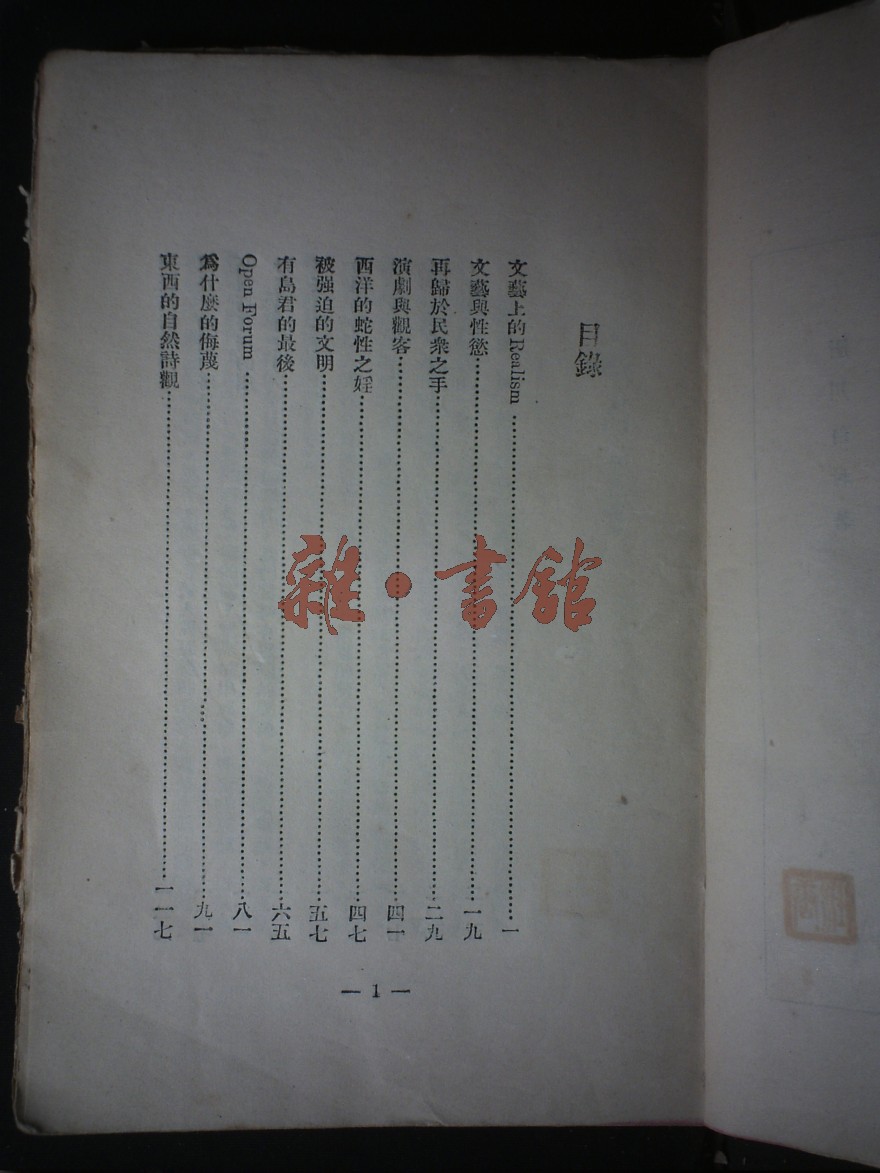 目錄
文藝上的Realism……一
文藝與性慾……一九
再歸於民衆之手……二九
演劇與觀客……四一
西洋的蛇性之婬……四七
被强迫的文明……五七
有島君的最後……六五
Open Forum……八一
爲什麼的侮蔑……九一
東西的自然詩觀……一一七
— 1 —
雜·書館